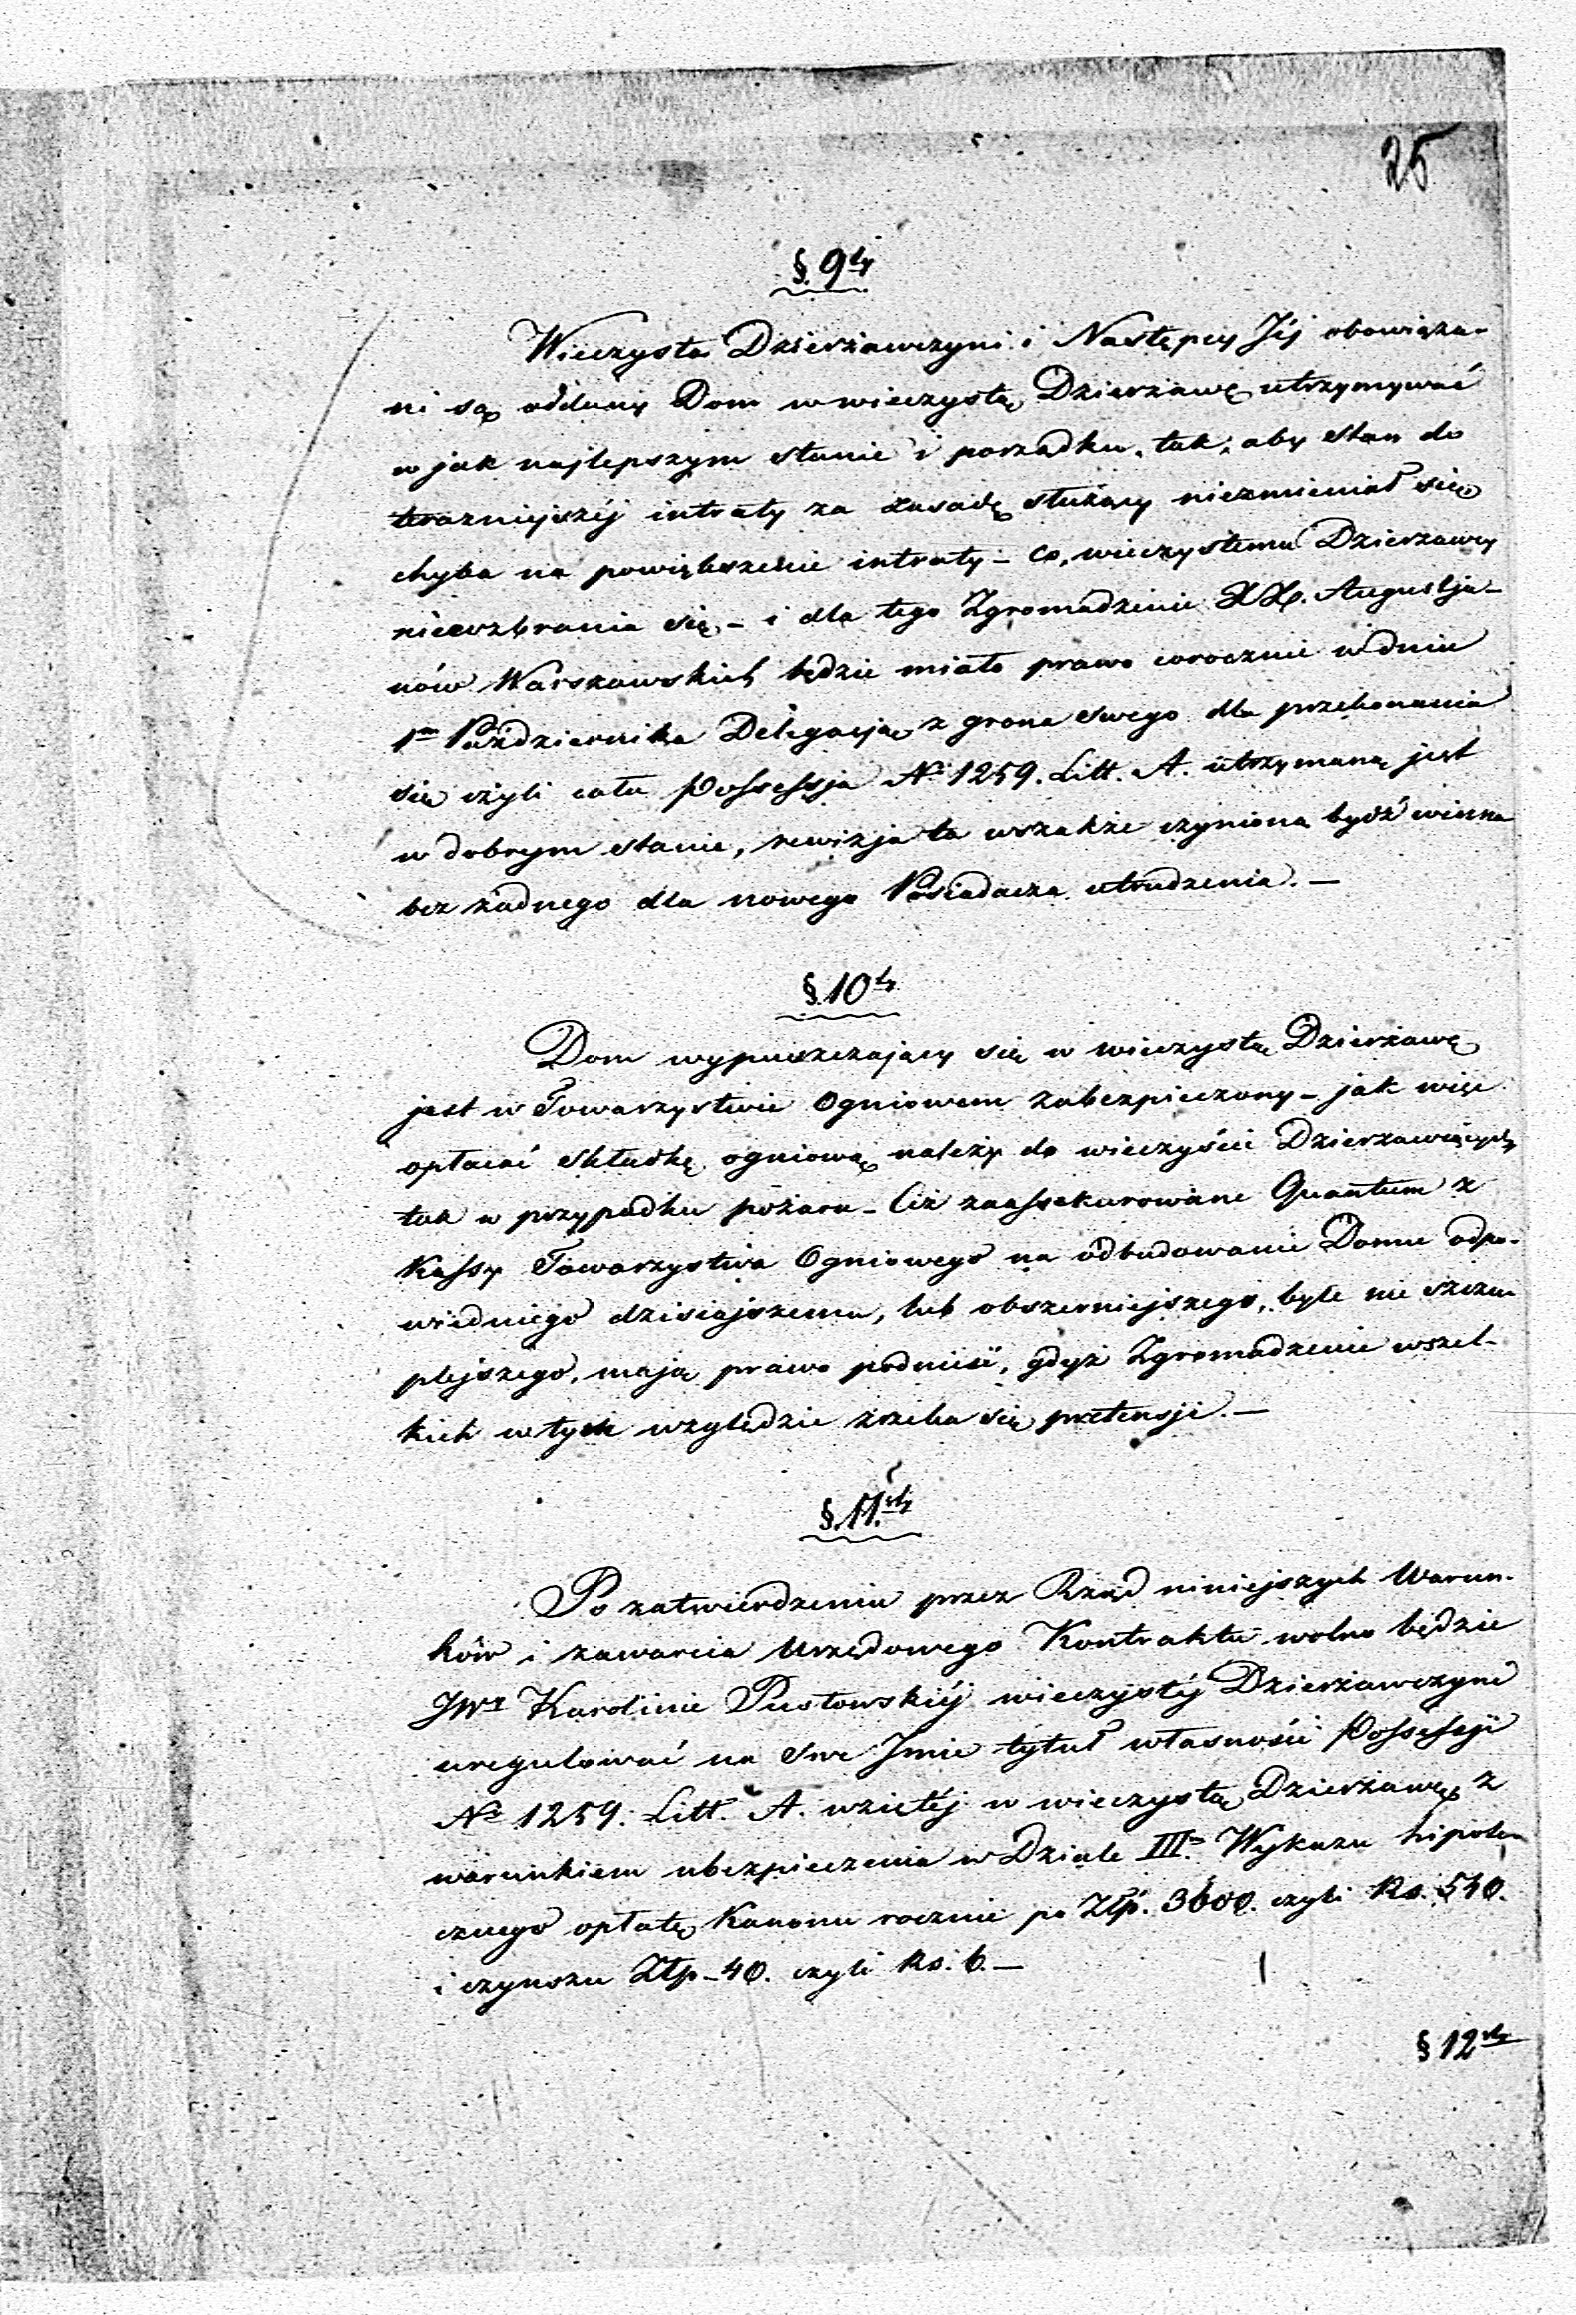 25
§. 9ty
Wieczysta Dzierżawczyni i Następcy Jéj obowiąza-
ni są oddany Dom w wieczystą Dzierżawę utrzymywać
w jak najlepszym stanie i porządku, tak, aby stan do
teraźniejszéj intraty za zasadę służący niezmieniał się
chyba na powiększenie intraty – co, wieczystemu Dzierżawcy
niewzbrania się, – i dla tego Zgromadzenie XX. Augustja-
nów Warszawskich będzie miało prawo corocznie w dniu
1m Października Delegacją z grona swego dla przekonania
się czyli cała Possessja No 1259. Litt. A. utrzymaną jest
w dobrym stanie, rewizja ta wszakże czynioną bydź winna
bez żadnego dla nowego Posiadacza utrudzenia. –
§. 10ty
Dom wypuszczający się w wieczystą Dzierżawę
jest w Towarzystwie Ogniowem zabezpieczony – jak więc
opłacać składkę ogniową należy do wieczyście Dzierżawiących,
tak w przypadku pożaru – Ciż zaassekurowane Quantum z
Kassy Towarzystwa Ogniowego na odbudowanie Domu odpo-
wiedniego dzisiejszemu, lub obszerniejszego, byle nie szczu-
plejszego, mają prawo podnieść, gdyż Zgromadzenie wszel-
kich w tym względzie zrzeka się pretensji. –
§. 11sty
Po zatwierdzeniu przez Rząd niniejszych Warun-
ków i zawarcia Urzędowego Kontraktu wolno będzie
JWej Karolinie Pustowskiéj wieczystéj Dzierżawczyni
uregulować na swe Imie tytuł własności Possessji
No 1259. Litt. A. wziętéj w wieczystą Dzierżawę z
warunkiem ubezpieczenia w Dziale III. Wykazu hipote-
cznego opłatę Kanonu rocznie po Złp. 3600. czyli Rs. 540.
i czynszu Złp – 40. czyli Rs. 6. –
§ 12sty